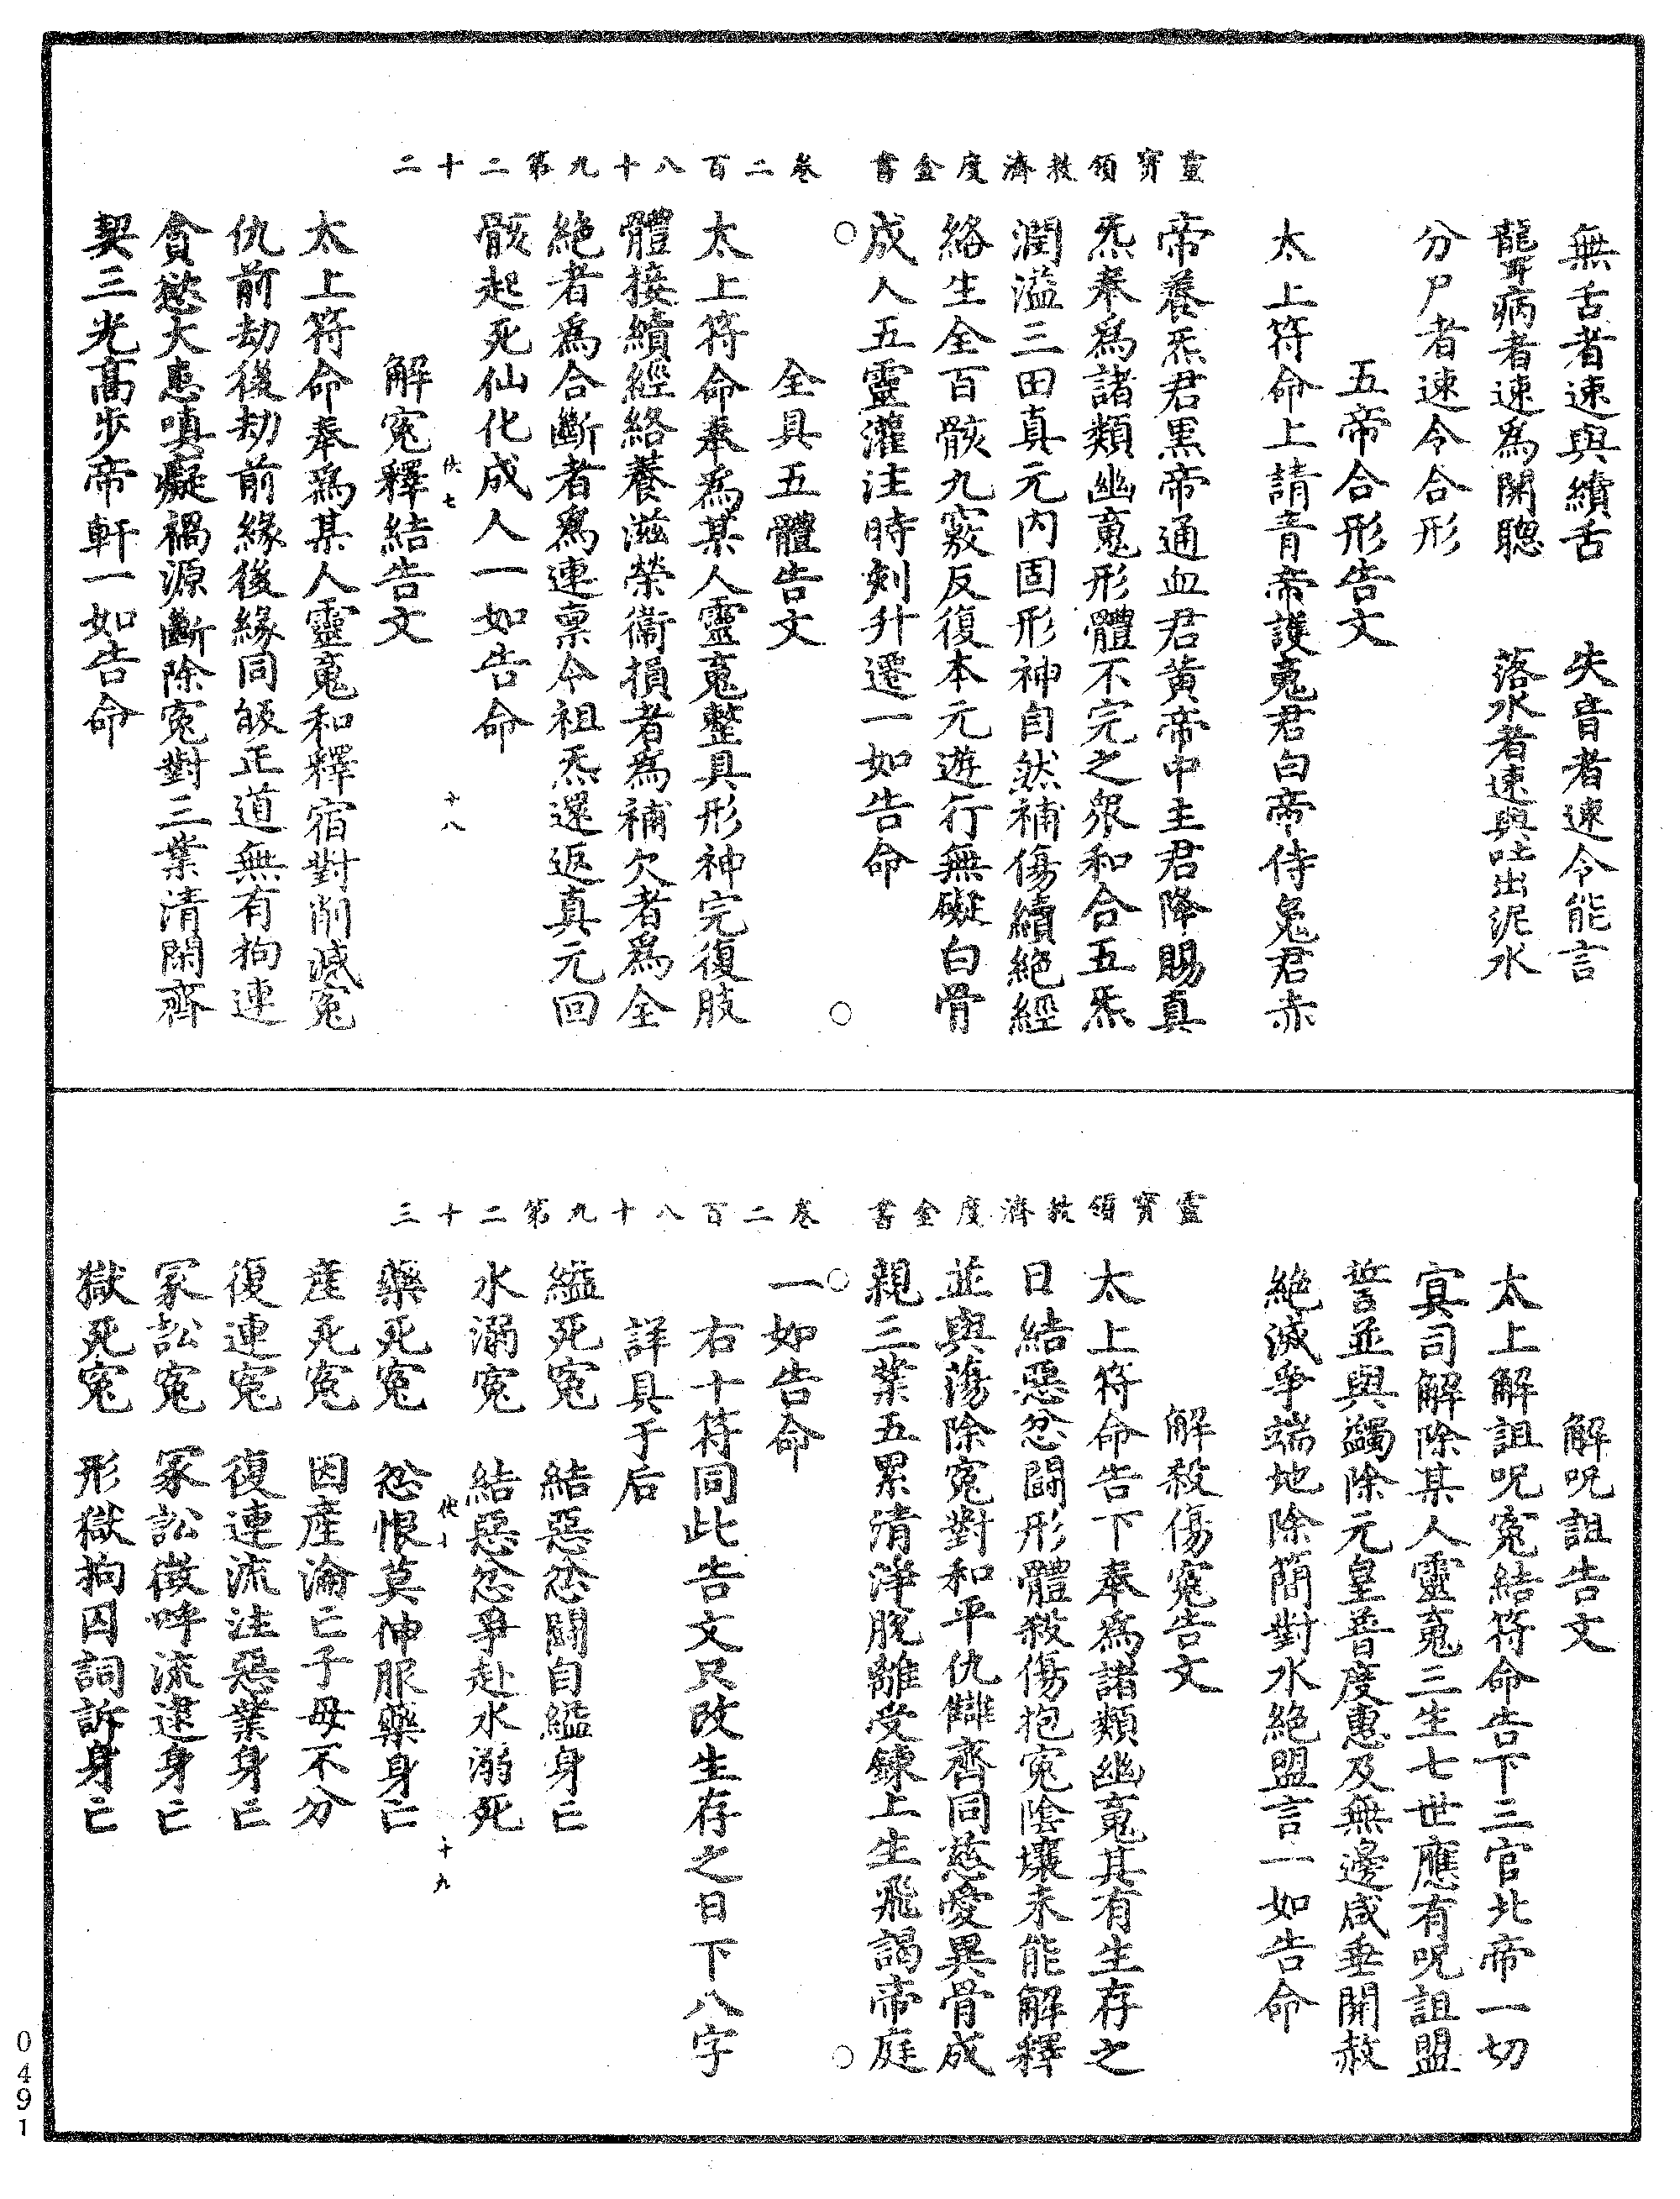 無舌者速與續舌　失音者速令能言
聾病者速為開聰　落水者速與吐出泥水
分尸者速令合形
五帝合形告文
太上符命上請青帝護䰟君白帝侍䰟君赤
帝養炁君黑帝通血君黃帝中主君降賜真
炁奉爲諸類幽䰟形體不完之衆和合五炁
潤溢三田真元內固形神自然補傷續絕經
絡生全百骸九竅反復本元遊行無礙白骨
成人五靈灌注時刻升遷一如告命
靈寶領教濟度金書　卷二百八十九第二十二
全具五體告文
太上符命奉為某人靈䰟整具形神完復肢
體接續經絡養滋榮衞損者為補欠者爲全
絕者為合斷者爲連稟令祖炁還返真元回
骸起死仙化成人一如告命
十八
解寃釋結告文
太上符命奉爲某人靈䰟和釋宿對削滅寃
仇前劫後劫前緣後緣同皈正道無有拘連
貪慾大恚嗔癡禍源斷除寃對三業清閑齊
契三光高步帝軒一如告命
解呪詛告文
太上解詛呪寃結符命告下三官北帝一切
寘司解除某人靈䰟三生七世應有呪詛盟
誓並與蠲除元皇普度惠及無邊咸垂開赦
絕滅爭端地除簡對水絕盟言一如告命
解殺傷寃告文
太上符命告下奉爲諸類幽䰟其有生存之
日結惡忿鬭形體殺傷抱寃陰壤未能解釋
並與蕩除寃對和平仇讎齊同慈愛異骨成
親三業五累清淨脫離受鍊上生飛謁帝庭
靈寶領教濟度金書　卷二百八十九第二十三
一如告命
右十符同此告文只改生存之日下八字
詳具于后
縊死寃　結惡忿鬭自縊身亡
水溺寃　結惡忿爭赴水溺死
十九
藥死寃　忿恨莫伸服藥身亡
產死寃　因產淪亡子母不分
復連寃　復連流注惡業身亡
冢訟寃　冢訟徵呼流逮身亡
獄死寃　形獄拘囚詞訴身亡
0491